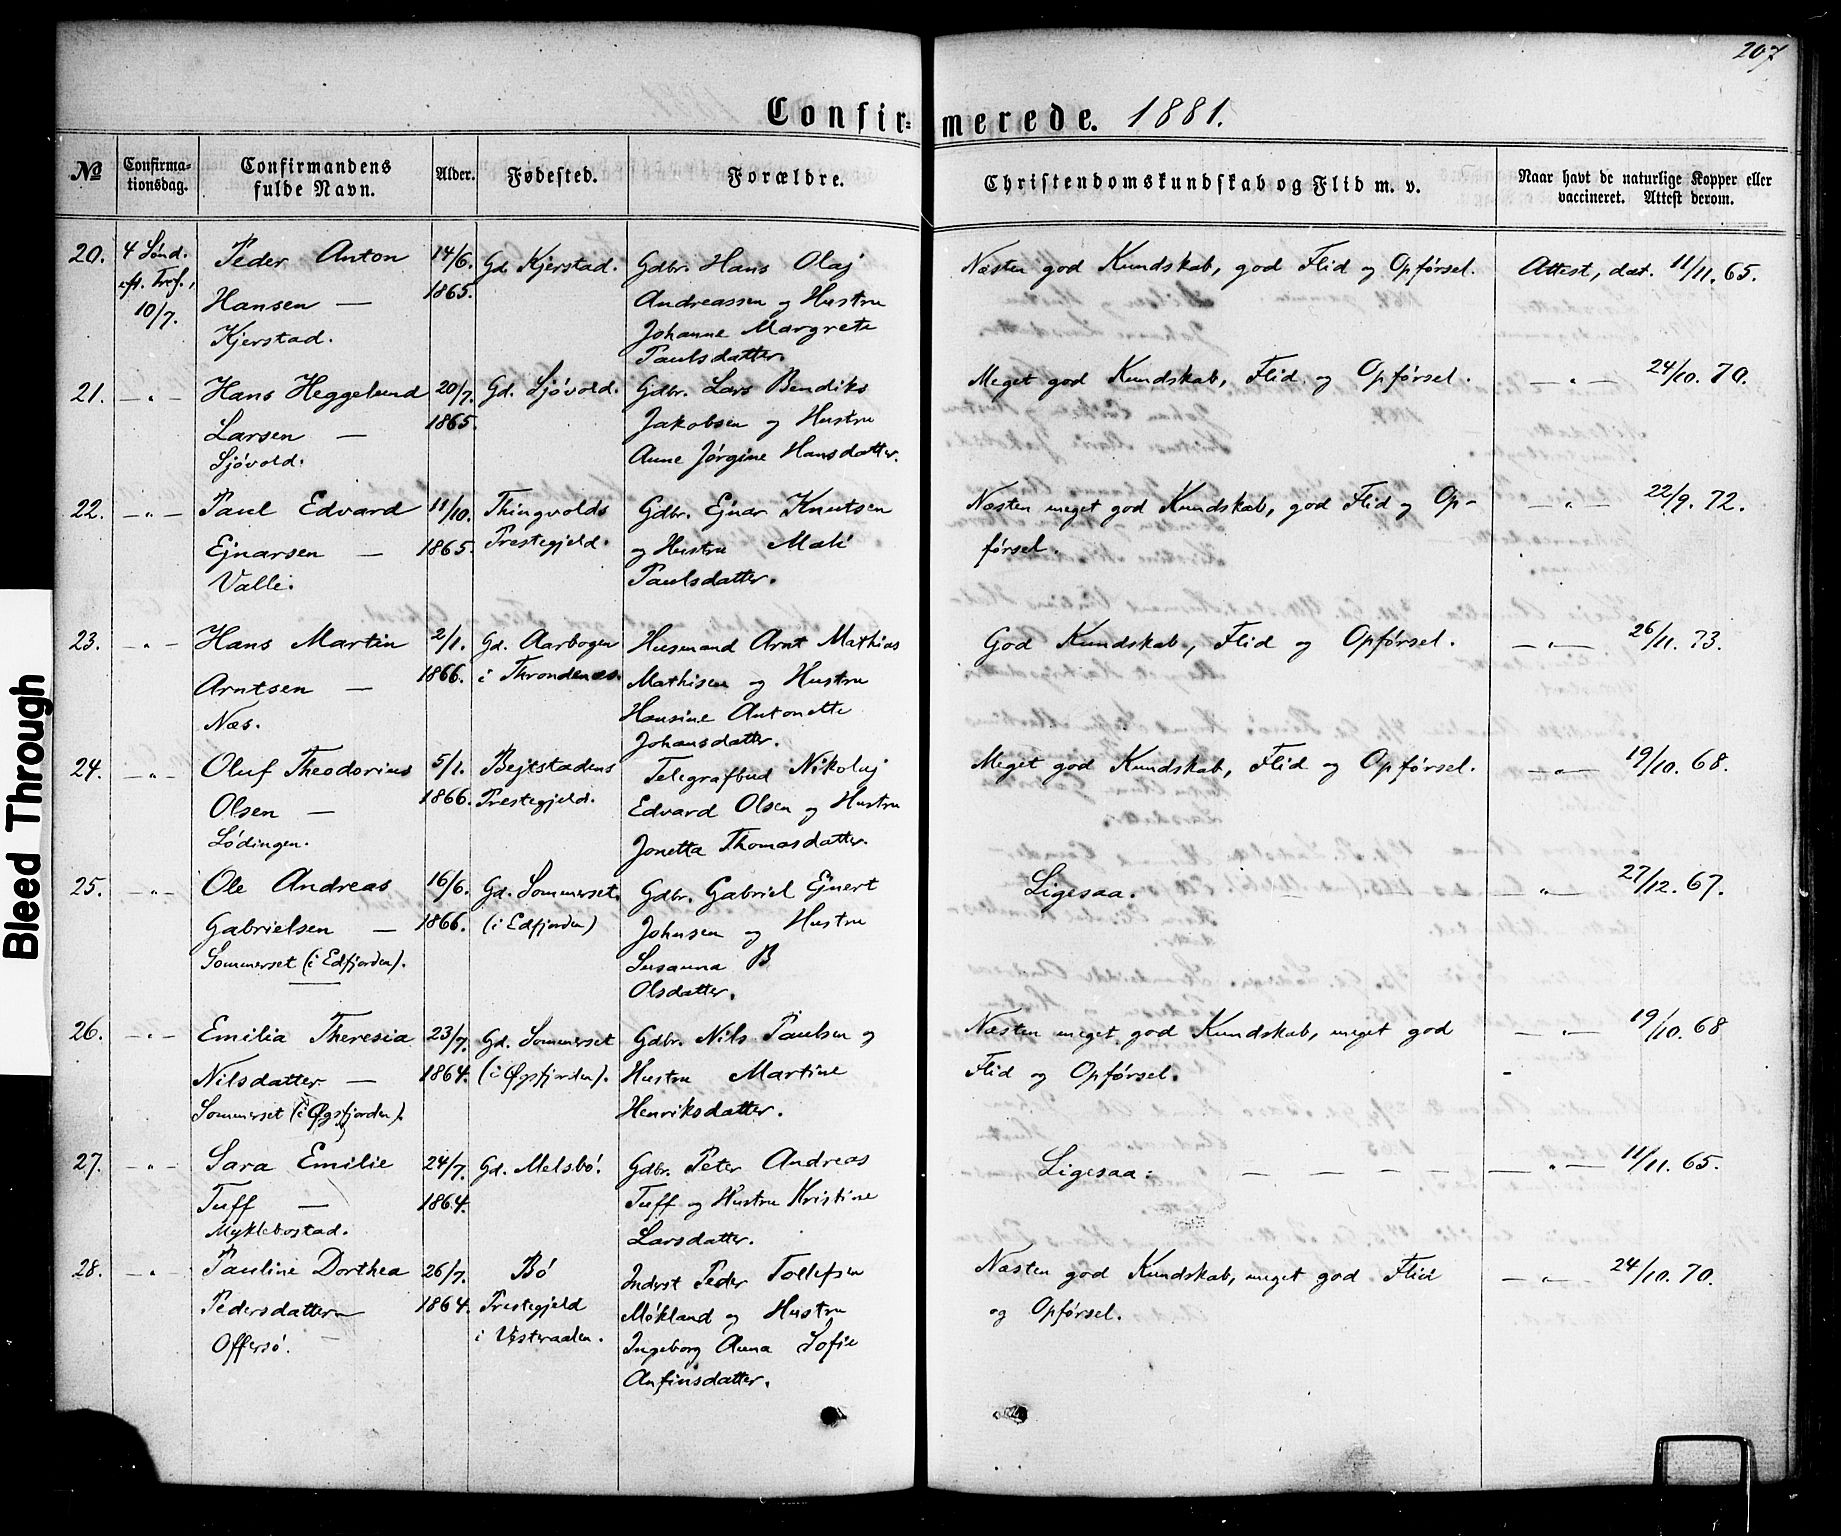 207
Confir= merede. 1881.
№ Confirma-tionsdag. Confirmandens fulde Navn. Alder. Fødested. Forældre. Christendomskundskab og Flid m. v. Naar havt de naturlige Kopper eller vaccineret. Attest derom.
20. 4 Sønd. Peder Anton 14/6. Gd. Kjerstad. Gdbr. Hans Olaj Næsten god Kundskab, god Flid og Opførsel. Attest, dat. 11/11. 65.
eft. Tref., Hansen — 1865. Andreassen og Hustru
10/7. Kjerstad. Johanne Margrete
Paulsdatter.
21. — „ — Hans Heggelund 20/7. Gd. Sjøvold. Gdbr. Lars Bendiks Meget god Kundskab, Flid og Opførsel. — „ — 24/10. 70.
Larsen — 1865. Jakobsen og Hustru
Sjøvold. Anne Jørgine Hansdatter.
22. — „ — Paul Edvard 11/10. Thingvolds Gdbr. Ejnar Knutsen Næsten meget god Kundskab, god Flid og Op- — „ — 22/9. 72.
Ejnarsen — 1865. Prestegjeld. og Hustru Mali førsel.
Valle. Paulsdatter.
23. — „ — Hans Martin 2/1. Gd. Aarbogen Husmand Arnt Mathias God Kundskab, Flid og Opførsel. — „ — 26/11. 73.
Arntsen — 1866. i Throndenæs. Mathisen og Hustru
Næs. Hansine Antonette
Johansdatter.
24. — „ — Oluf Theodorius 5/1. Bejtstadens Telegrafbud Nikolaj Meget god Kundskab, Flid og Opførsel. — „ — 19/10. 68.
Olsen — 1866. Prestegjeld. Edvard Olsen og Hustru
Lødingen. Jonetta Thomasdatter.
25. — „ — Ole Andreas 16/6. Gd. Sommerset. Gdbr. Gabriel Ejnert Ligesaa. — „ — 27/12. 67.
Gabrielsen — 1866. (i Edfjorden) Johnsen og Hustru
Sommerset (i Edfjorden). Susanna B
Olsdatter.
26. — „ — Emilia Theresia 23/7. Gd. Sommerset Gdbr. Nils Paulsen og Næsten meget god Kundskab, meget god — „ — 19/10. 68
Nilsdatter — 1864. (i Øgsfjorden). Hustru Martine Flid og Opførsel.
Sommerset (i Øgsfjorden). Henriksdatter.
27. — „ — Sara Emilie 24/7. Gd. Melsbø. Gdbr. Peter Andreas Ligesaa: — — — — — „ — 11/11. 65.
Tuff — 1864. Tuff og Hustru Kristine
Myklebostad. Larsdatter.
28. — „ — Pauline Dorthea 26/7. Bø Inderst Peder Tollefsen Næsten god Kundskab, meget god Flid — „ — 24/10. 70.
Pedersdatter — 1864. Prestegjeld Møkland og Hustru og Opførsel.
Offersø. i Vesteraalen. Ingeborg Anna Sofie
Anfinsdatter.
Bleed Through